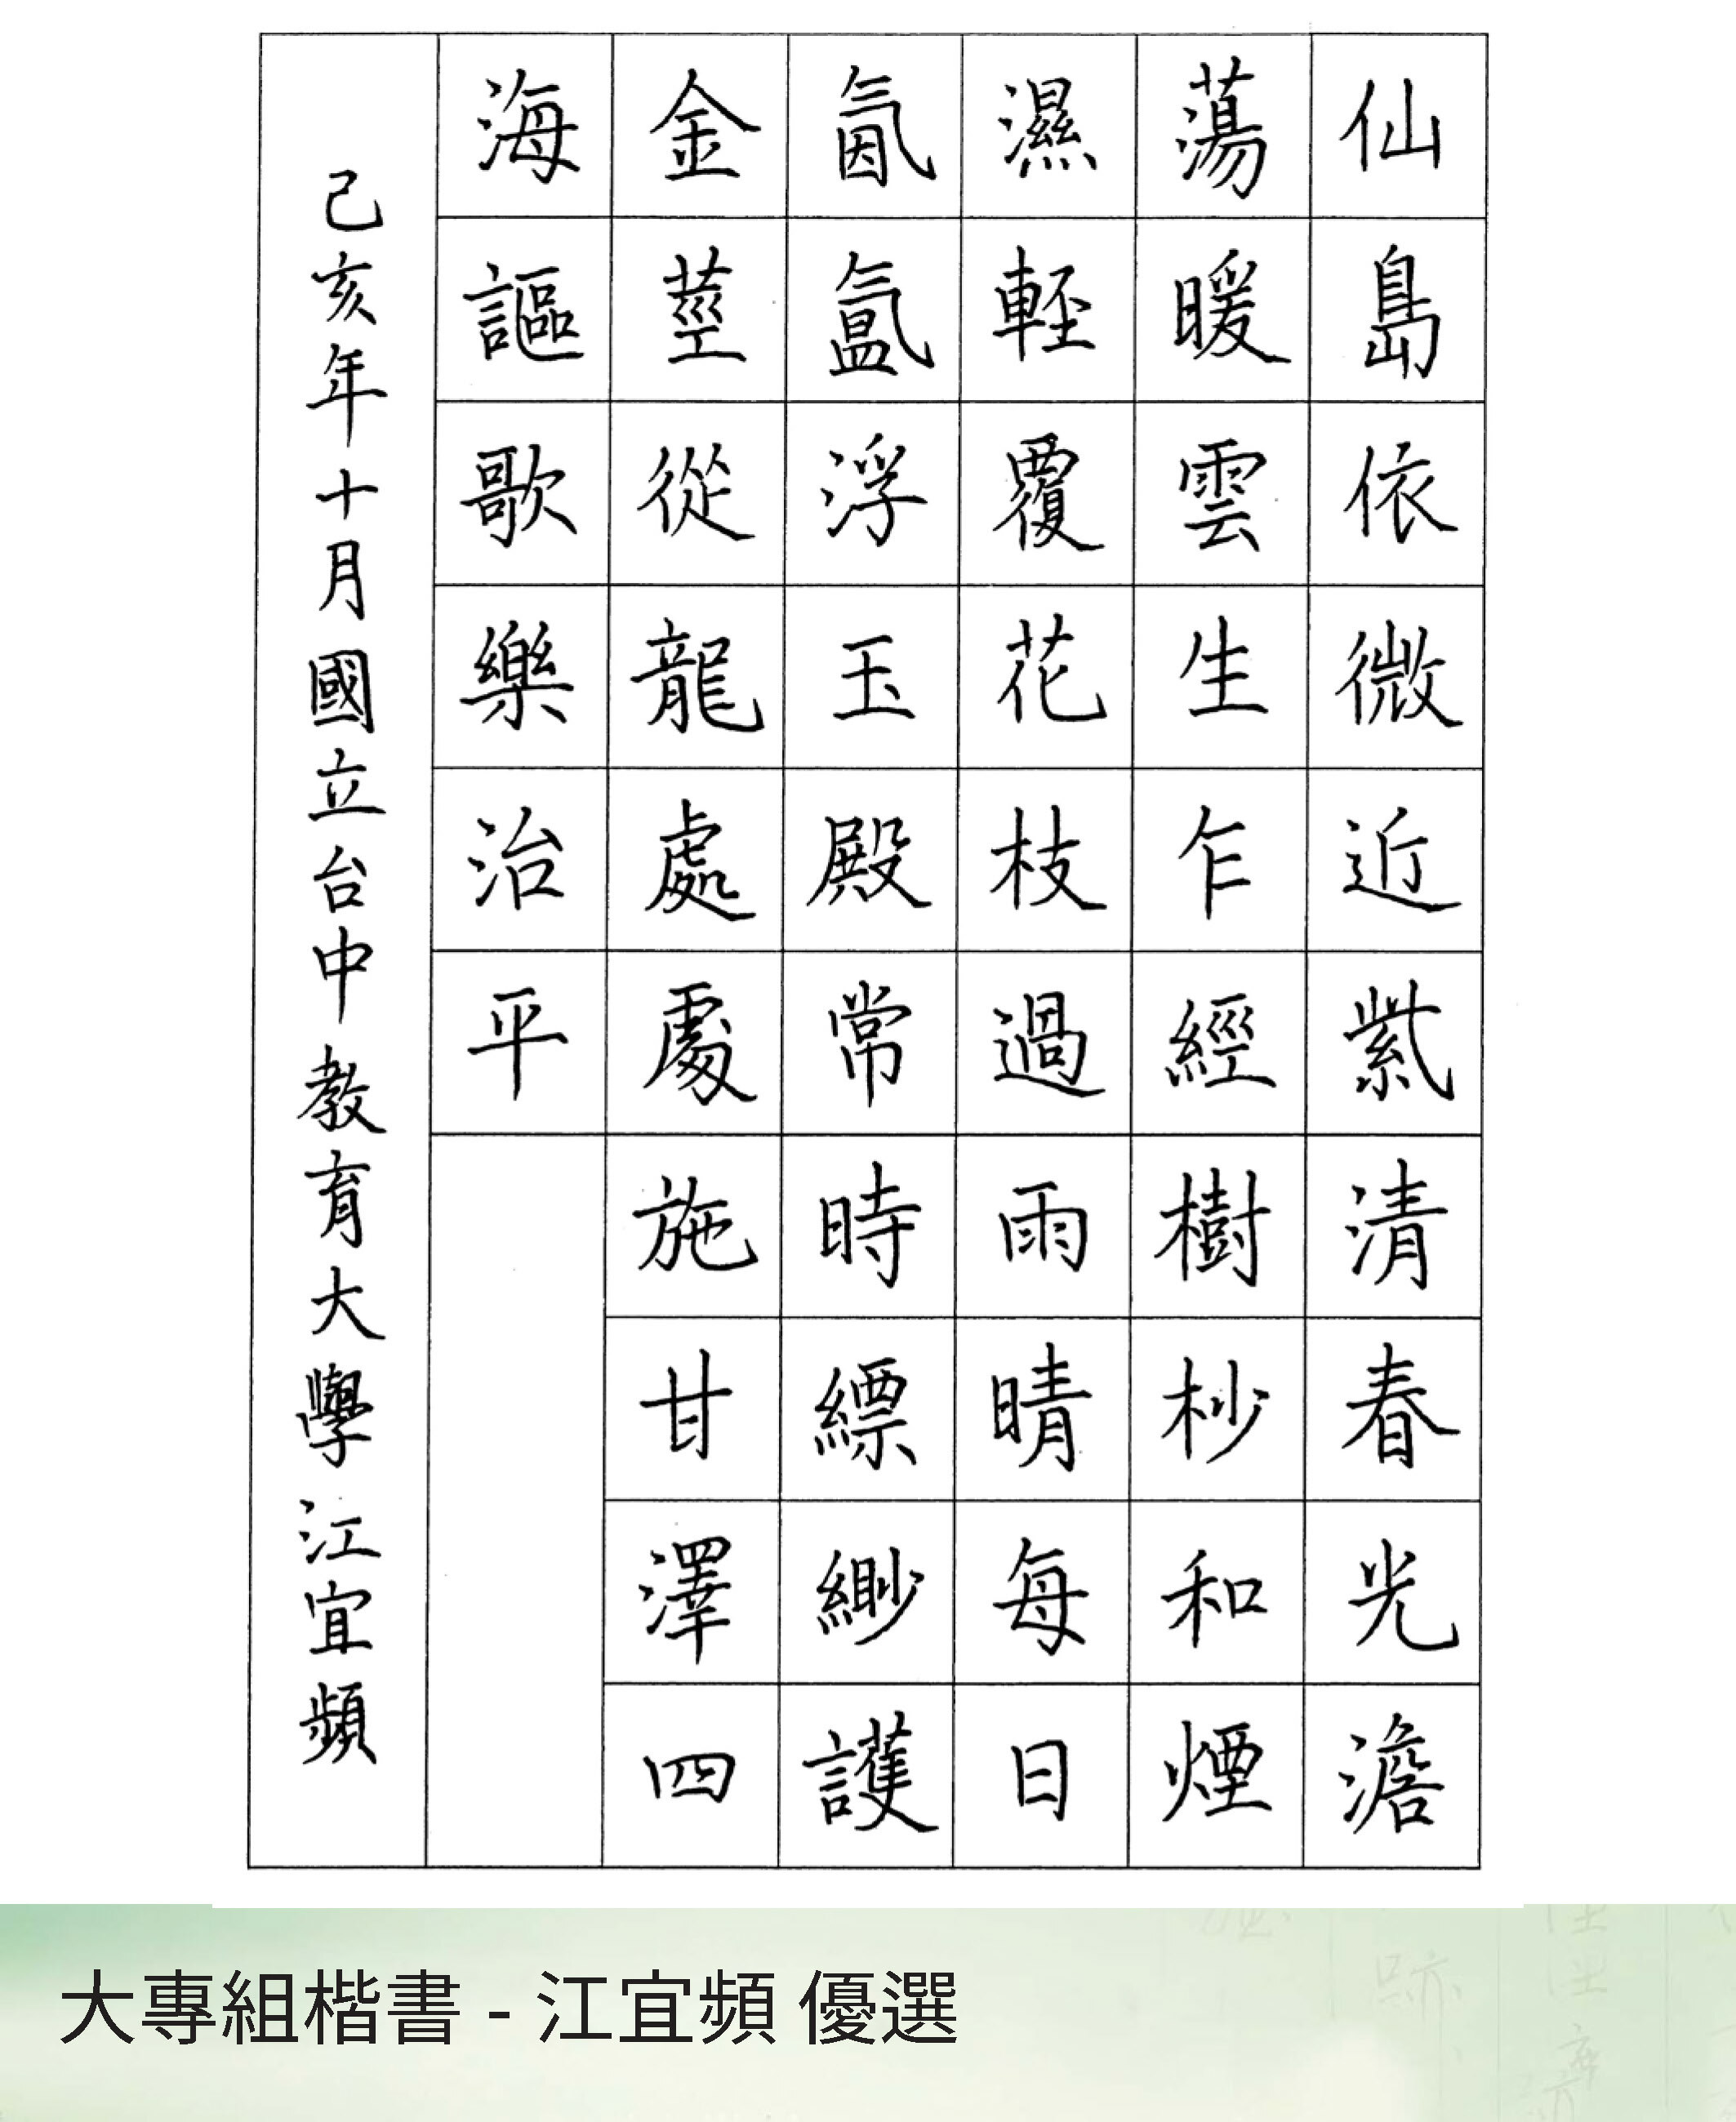 仙島依微近紫清春光澹
蕩暖雲生乍經樹杪和煙
濕輕覆花枝過雨晴每日
氤氳浮玉殿常時縹緲護
金莖從龍處處施甘澤四
海謳歌樂治平
己亥年十月國立台中教育大學江宜頻
大專組楷書 - 江宜頻 優選